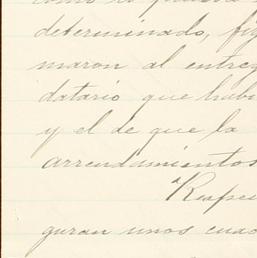 como
determinado, fi
maron al entreg
datario que hab
y el de que la
arrendamientos
Respe
guran unos cua